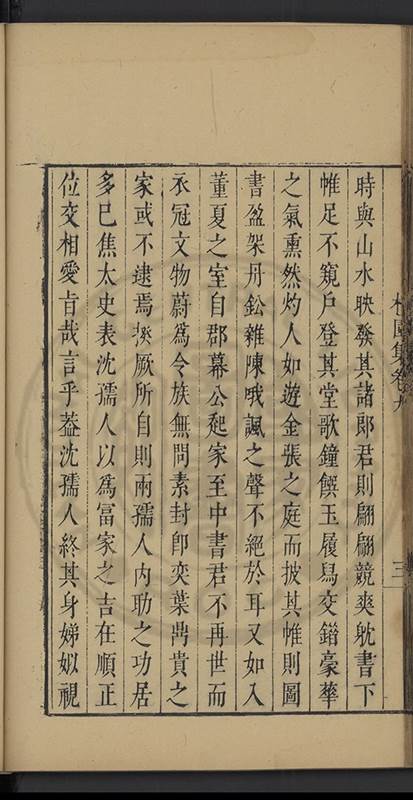 時與山水映發其諸郎君則翩翩競爽躭書下
帷足不窺戶登其堂歌鐘饌玉履舃交錯豪華
之氣熏然灼人如遊金張之庭而披其帷則圖
書盈架丹鉛雜陳哦諷之聲不絕於耳又如入
董夏之室自郡幕公起家至中書君不再世而
衣冠文物蔚爲令族無問素封卽奕葉鼎貴之
家或不逮焉揆厥所自則兩孺人內助之功居
多已焦太史表沈孺人以爲冨家之吉在順正
位交相愛旨哉言乎葢沈孺人終其身娣姒視
園集卷九
三